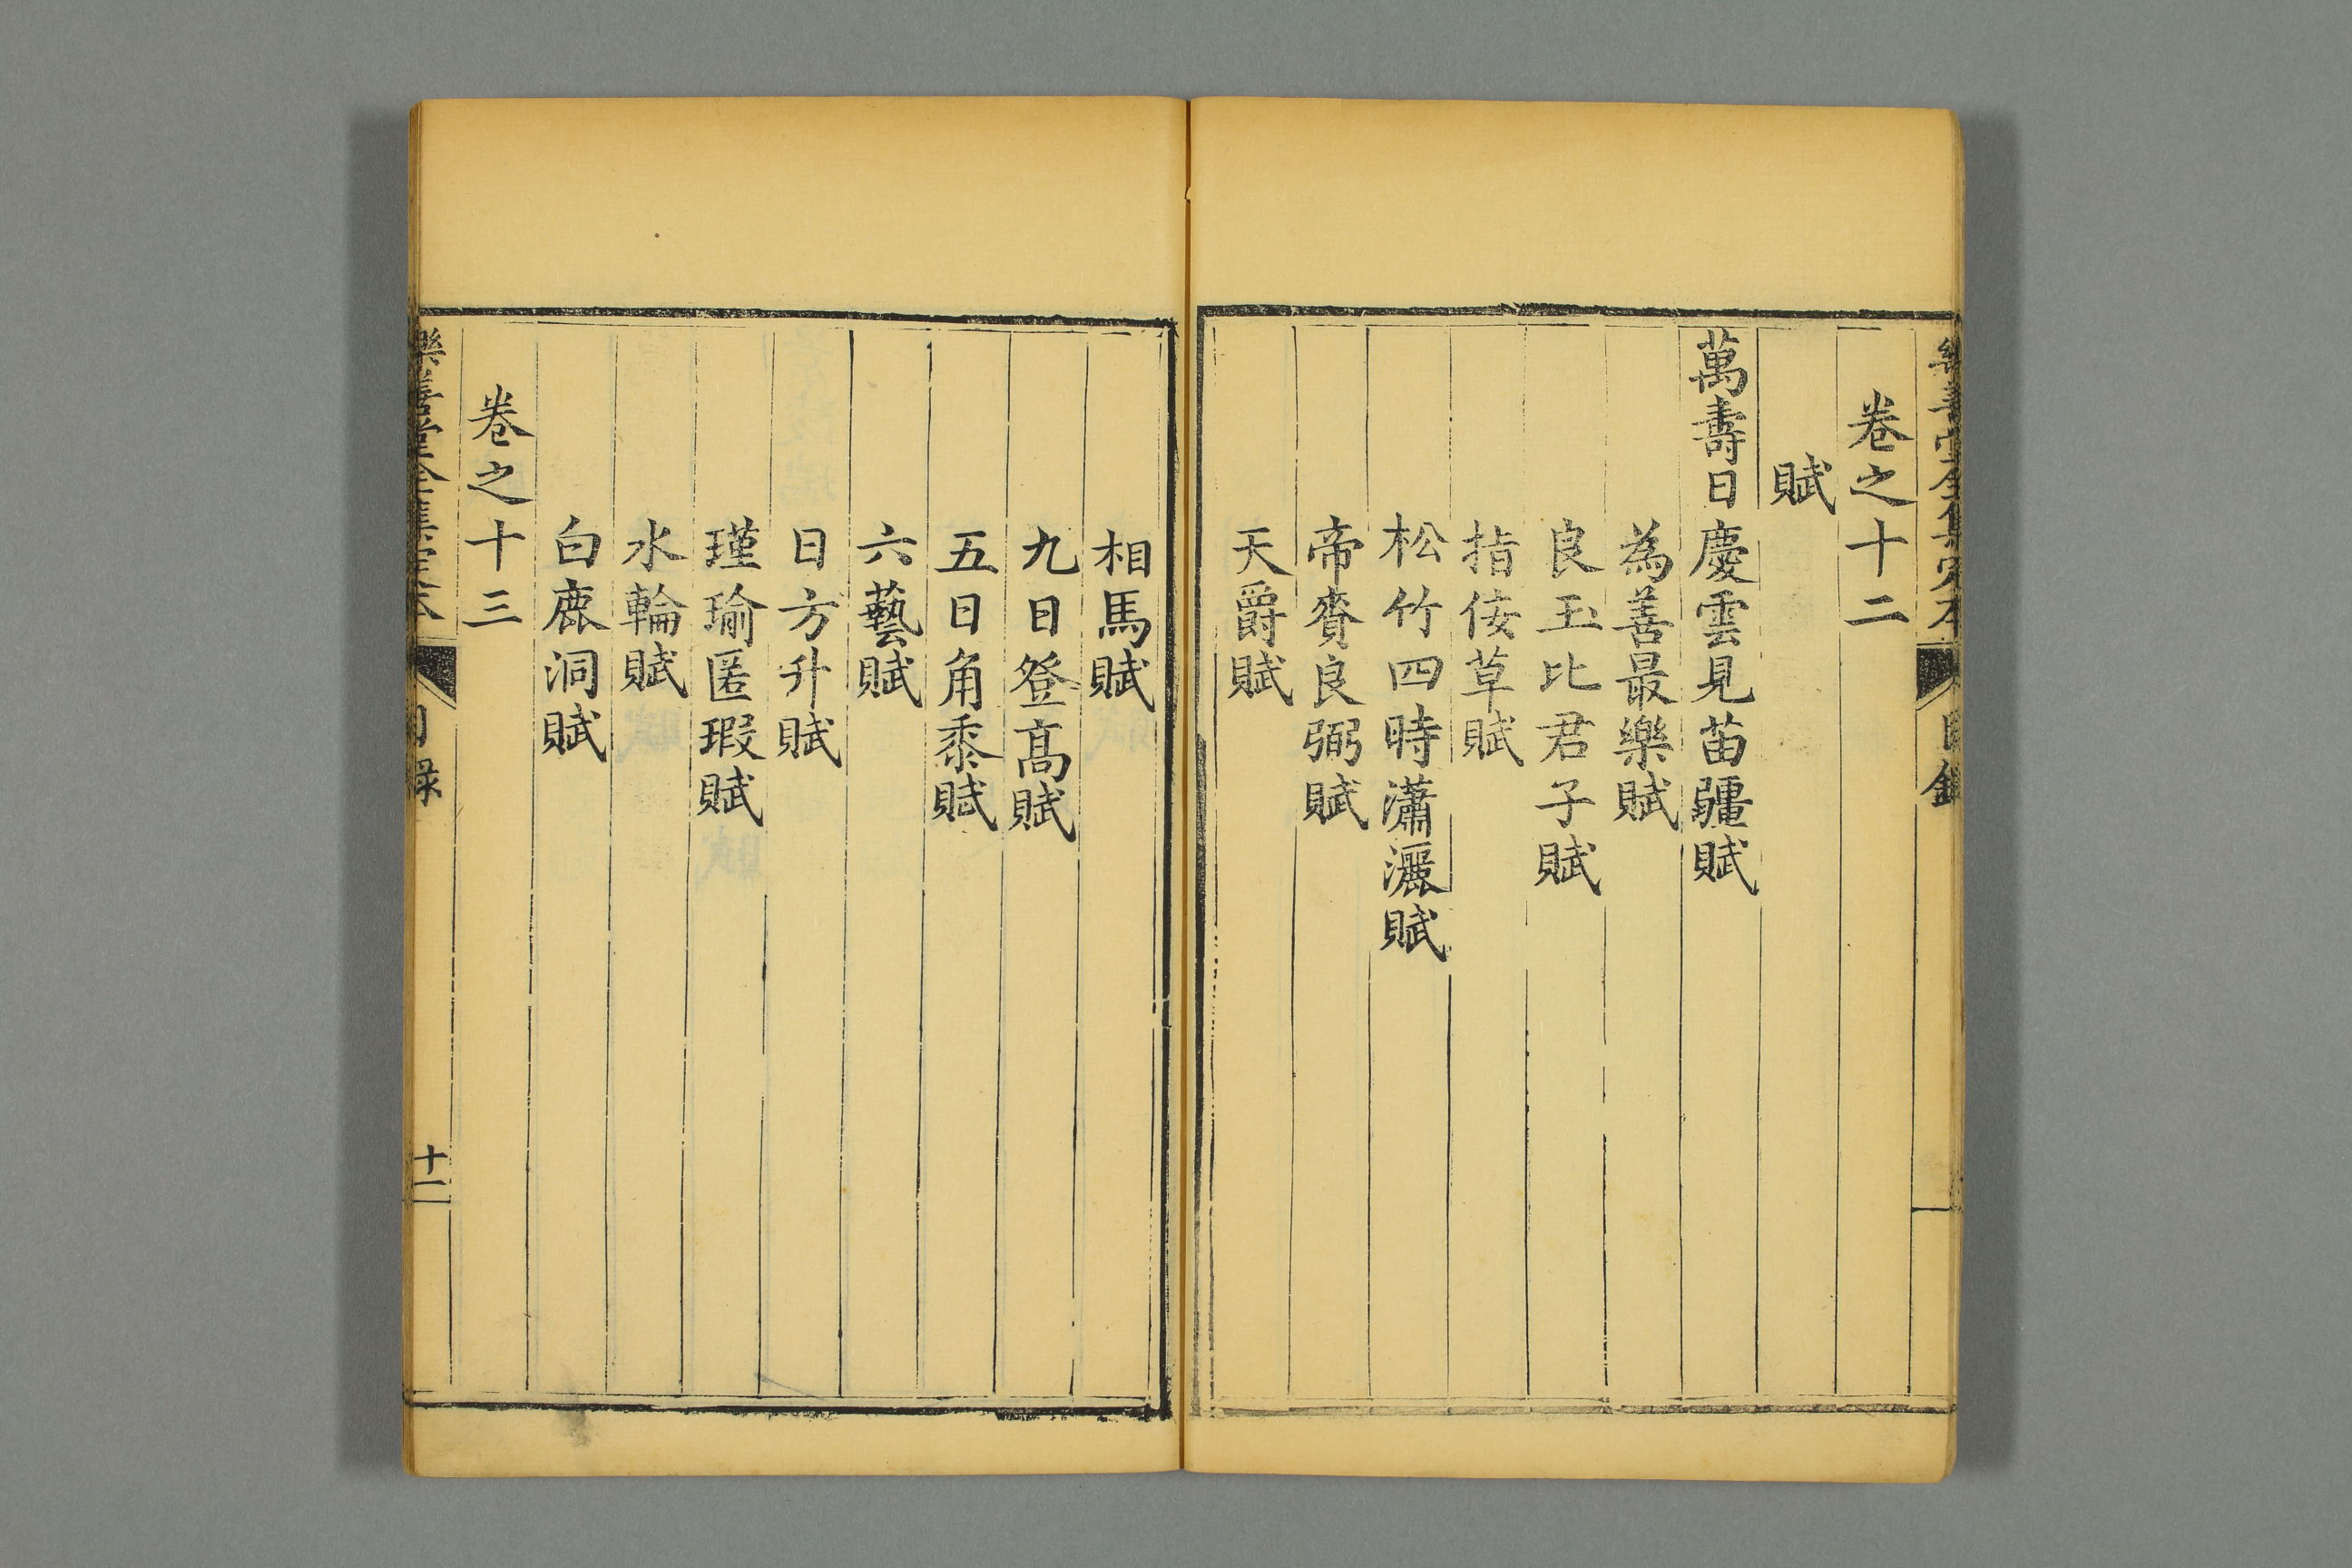 樂善堂全集定本
目錄
卷之十二
賦
萬壽日慶雲見苗疆賦
為善最樂賦
良玉比君子賦
指佞草賦
松竹四時瀟灑賦
帝賚良弼賦
天爵賦
相馬賦
九日登髙賦
五日角黍賦
六藝賦
日方升賦
瑾瑜匿瑕賦
水輪賦
白鹿洞賦
卷之十三
樂善堂全集定本
目錄
十二